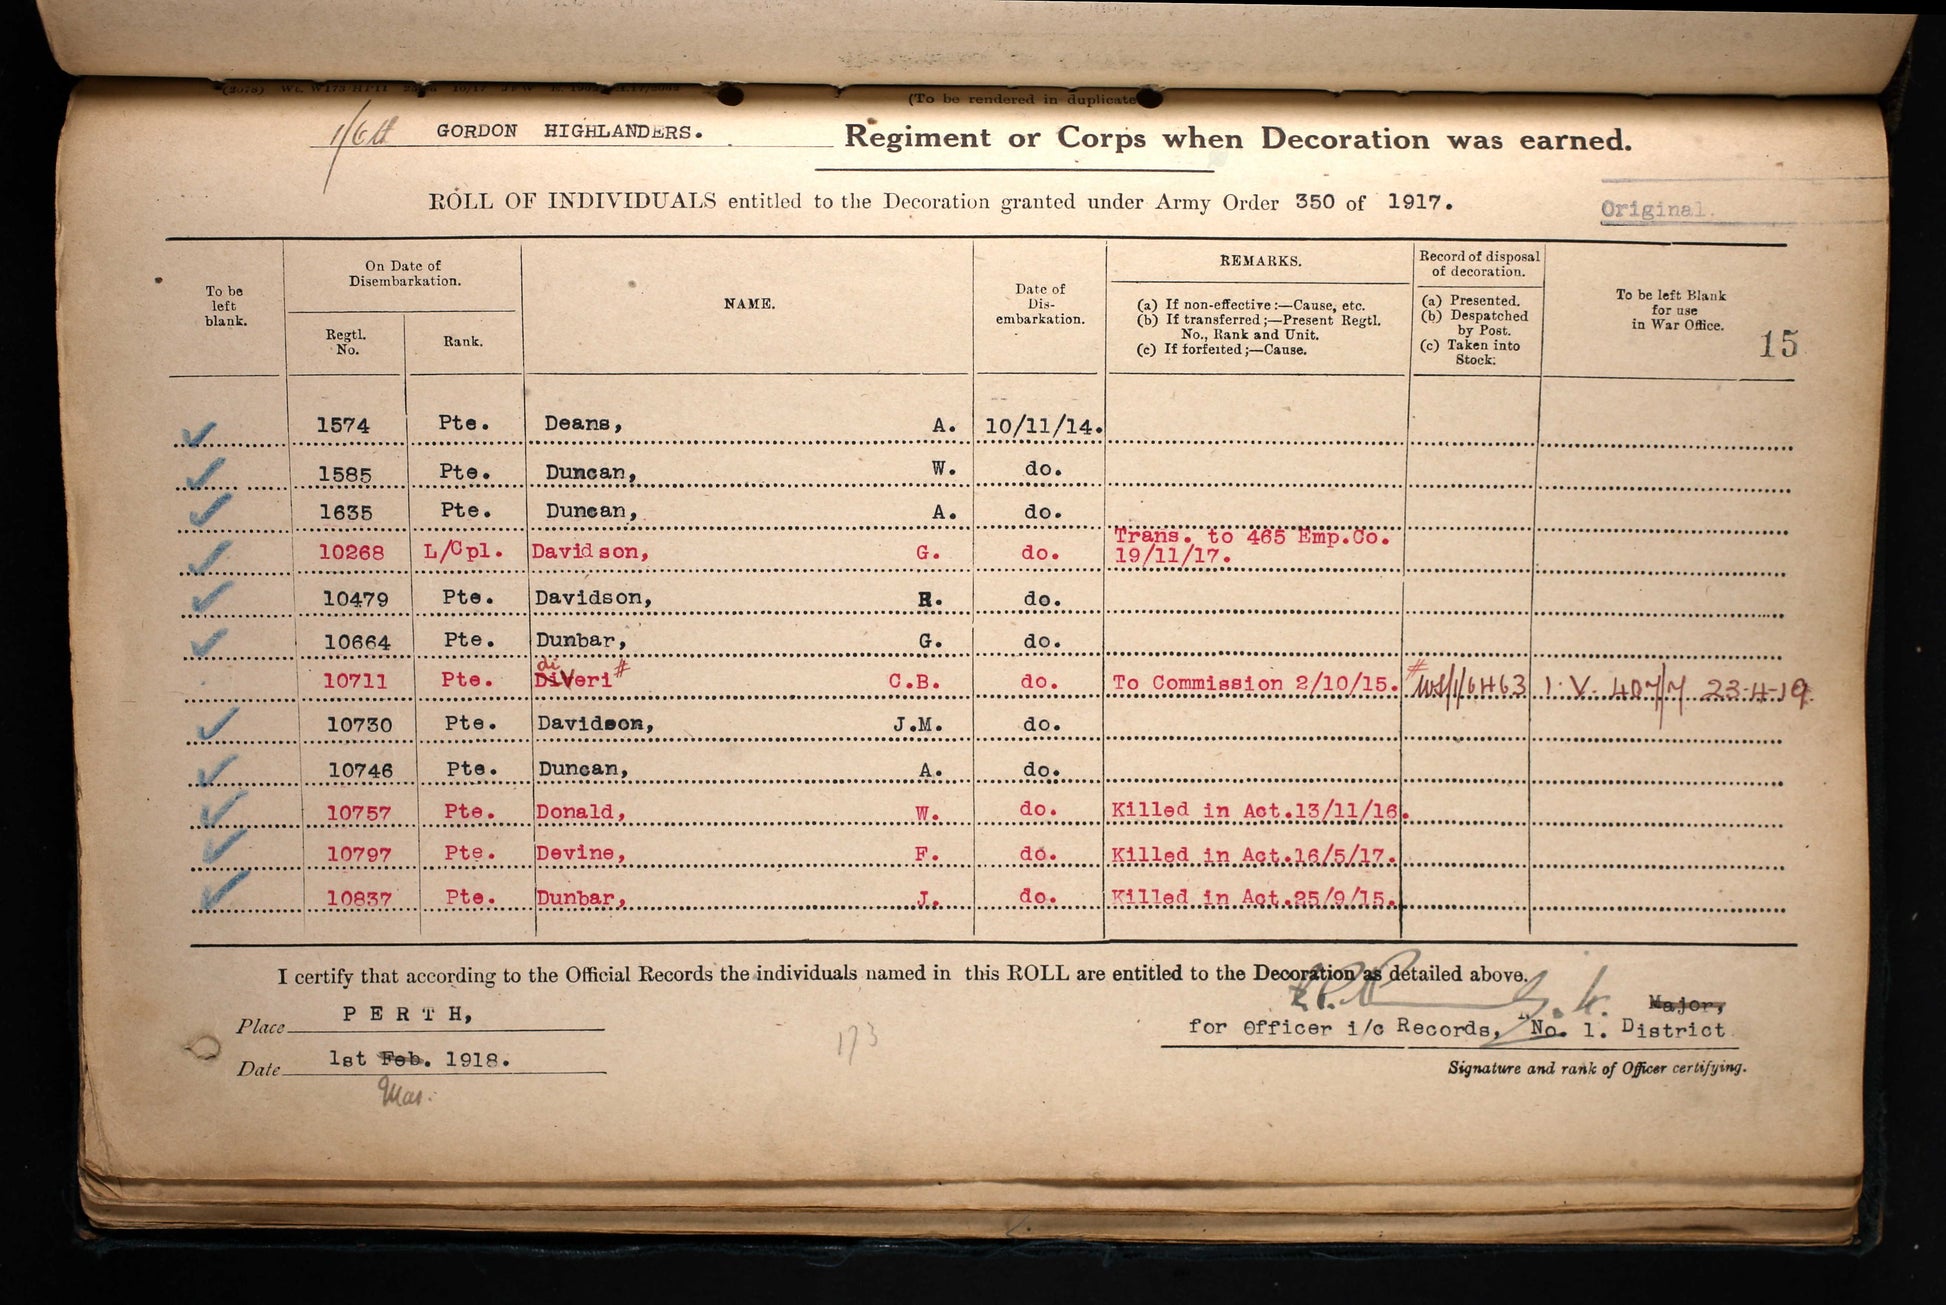 (To be rendered in duplicate
1/6th GORDON HIGHLANDERS. Regiment or Corps when Decoration was earned.
ROLL OF INDIVIDUALS entitled to the Decoration granted under Army Order 350 of 1917.
Original.
To be left blank.
On Date of Disembarkation.
Regtl. No.
Rank.
NAME.
Date of Dis-embarkation.
REMARKS.
(a) If non-effective:—Cause, etc.
(b) If transferred;—Present Regtl. No., Rank and Unit.
(c) If forfeited;—Cause.
Record of disposal of decoration.
(a) Presented.
(b) Despatched by Post.
(c) Taken into Stock.
To be left Blank for use in War Office.
15
1574 Pte. Deans, A. 10/11/14.
1585 Pte. Duncan, W. do.
1635 Pte. Duncan, A. do.
10268 L/Cpl. Davidson, G. do. Trans. to 465 Emp.Co. 19/11/17.
10479 Pte. Davidson, R. do.
10664 Pte. Dunbar, G. do.
di
10711 Pte. DiVeri # C.B. do. To Commission 2/10/15. # 23-4-19
10730 Pte. Davidson, J.M. do.
10746 Pte. Duncan, A. do.
10757 Pte. Donald, W. do. Killed in Act.13/11/16.
10797 Pte. Devine, F. do. Killed in Act.16/5/17.
10837 Pte. Dunbar, J. do. Killed in Act.25/9/15.
I certify that according to the Official Records the individuals named in this ROLL are entitled to the Decoration as detailed above.
Place PERTH,
Major,
for Officer i/c Records, No. 1. District
Date 1st Feb. 1918.
Mar.
173
Signature and rank of Officer certifying.